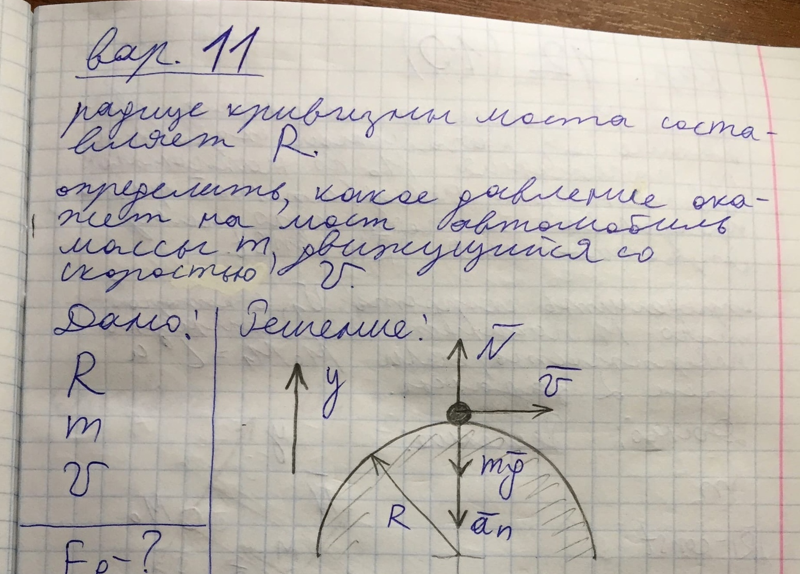 вар. 11
радиус кривизны моста соста-
вляет R.
определить, какое давление ока-
жет на мост автомобиль
массы m, движущийся со
скоростью v.
Дано: Решение:
N̅
y
v̅
R
m
mg̅
v
R
a̅n
-?